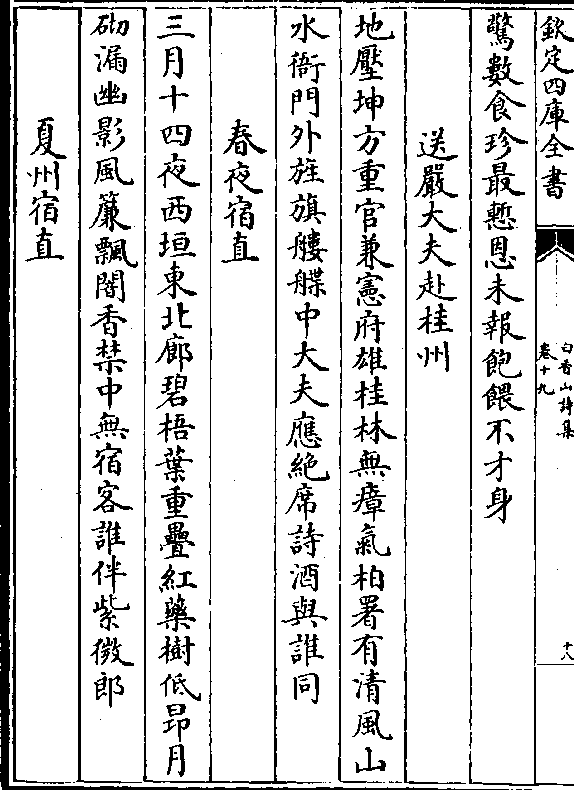 欽定四庫全書
白香山詩集
卷十九
十八
驚數食珍最慙恩未報飽餵不才身
送嚴大夫赴桂州
地壓坤方重官兼憲府雄桂林無瘴氣柏署有清風山
水衙門外旌旗艛艓中大夫應絶席詩酒與誰同
春夜宿直
三月十四夜西垣東北廊碧梧葉重疊紅藥樹低昂月
砌漏幽影風簾飄闇香禁中無宿客誰伴紫微郎
夏州宿直